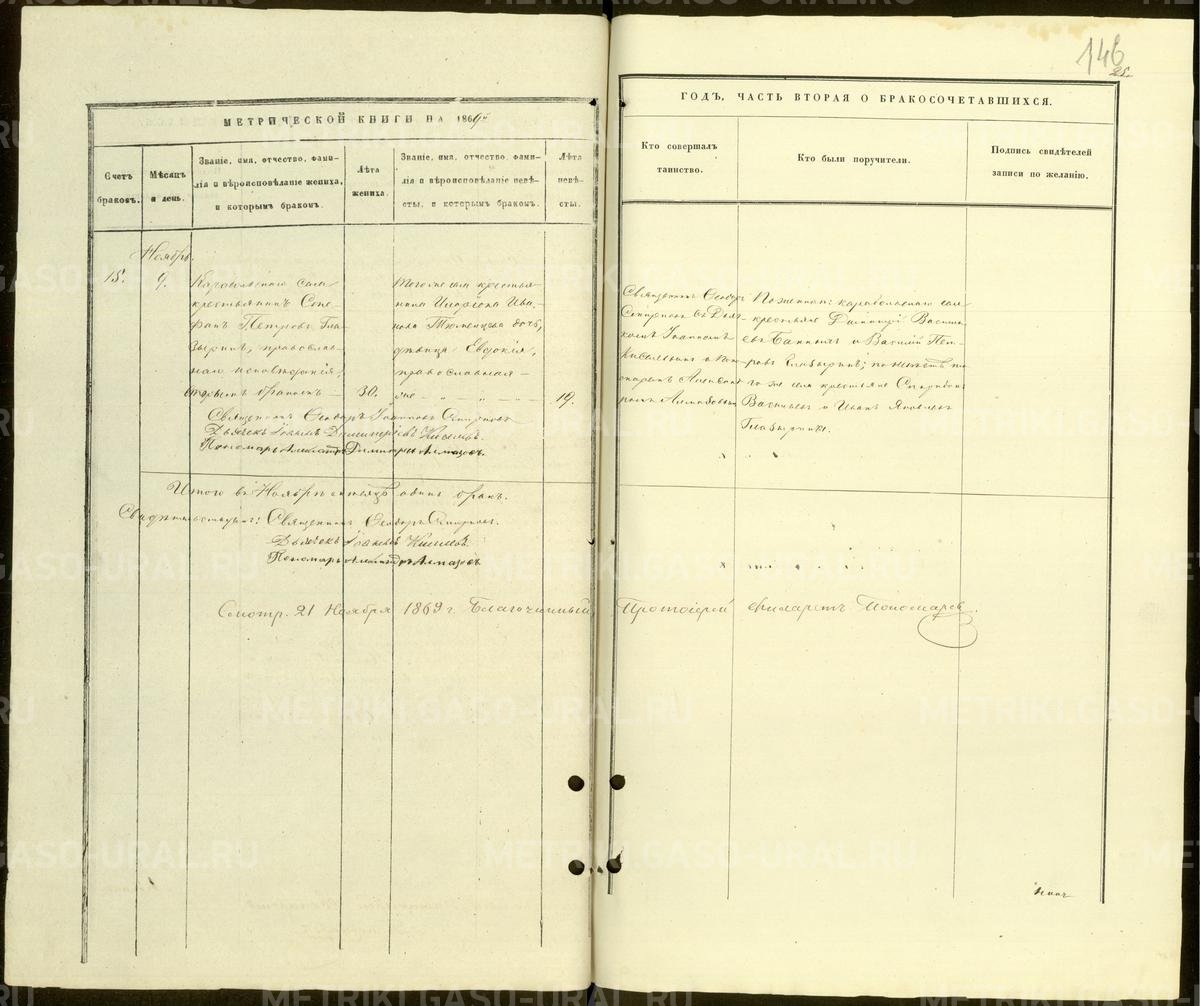 146
25.
МЕТРИЧЕСКОЙ КНИГИ НА 1869й
ГОДЪ, ЧАСТЬ ВТОРАЯ О БРАКОСОЧЕТАВШИХСЯ.
Счетъ браковъ.
Мѣсяцъ и день.
Званіе, имя, отчество, фами-
лія и вѣроисповѣданіе жениха,
и которымъ бракомъ.
Лѣта жениха.
Званіе, имя, отчество, фами-
лія и вѣроисповѣданіе невѣ-
сты, и которымъ бракомъ.
Лѣта невѣ-
сты.
Кто совершалъ
таинство.
Кто были поручители.
Подпись свидѣтелей
записи по желанію.
Ноябрь.
15.
9.
села
крестьянинъ Сте-
фанъ Петровъ Гла-
зыринъ, православ-
наго исповѣданія,
вторымъ бракомъ —
30.
Тогоже села крестья-
нина Ива-
нова Тюменцева дочь,
дѣвица Евдокія,
православная —
19.
Священникъ Ѳеодоръ
Іоанномъ
По женихѣ: села
крестьяне Димитрій Василь-
евъ и Василій Пет-
ровъ Глазыринъ; по невѣстѣ то-
го же села крестьяне Спиридонъ
Васильевъ и Иванъ Яковлевъ
Глазырины.
Священникъ Ѳеодоръ Іоанновъ
Дьячекъ Іоаннъ Димитріевъ
Пономарь Димитріевъ Алмазовъ.
Итого въ Ноябрѣ мѣсяцѣ одинъ бракъ.
Свидѣтельствуютъ: Священникъ Ѳеодоръ
Дьячекъ Іоаннъ
Пономарь Александръ Алмазовъ
Смотр. 21 Ноября 1869 г. Благочинный Протоіерей Филаретъ Пономаревъ.
METRIKI.GASO-URAL.RU